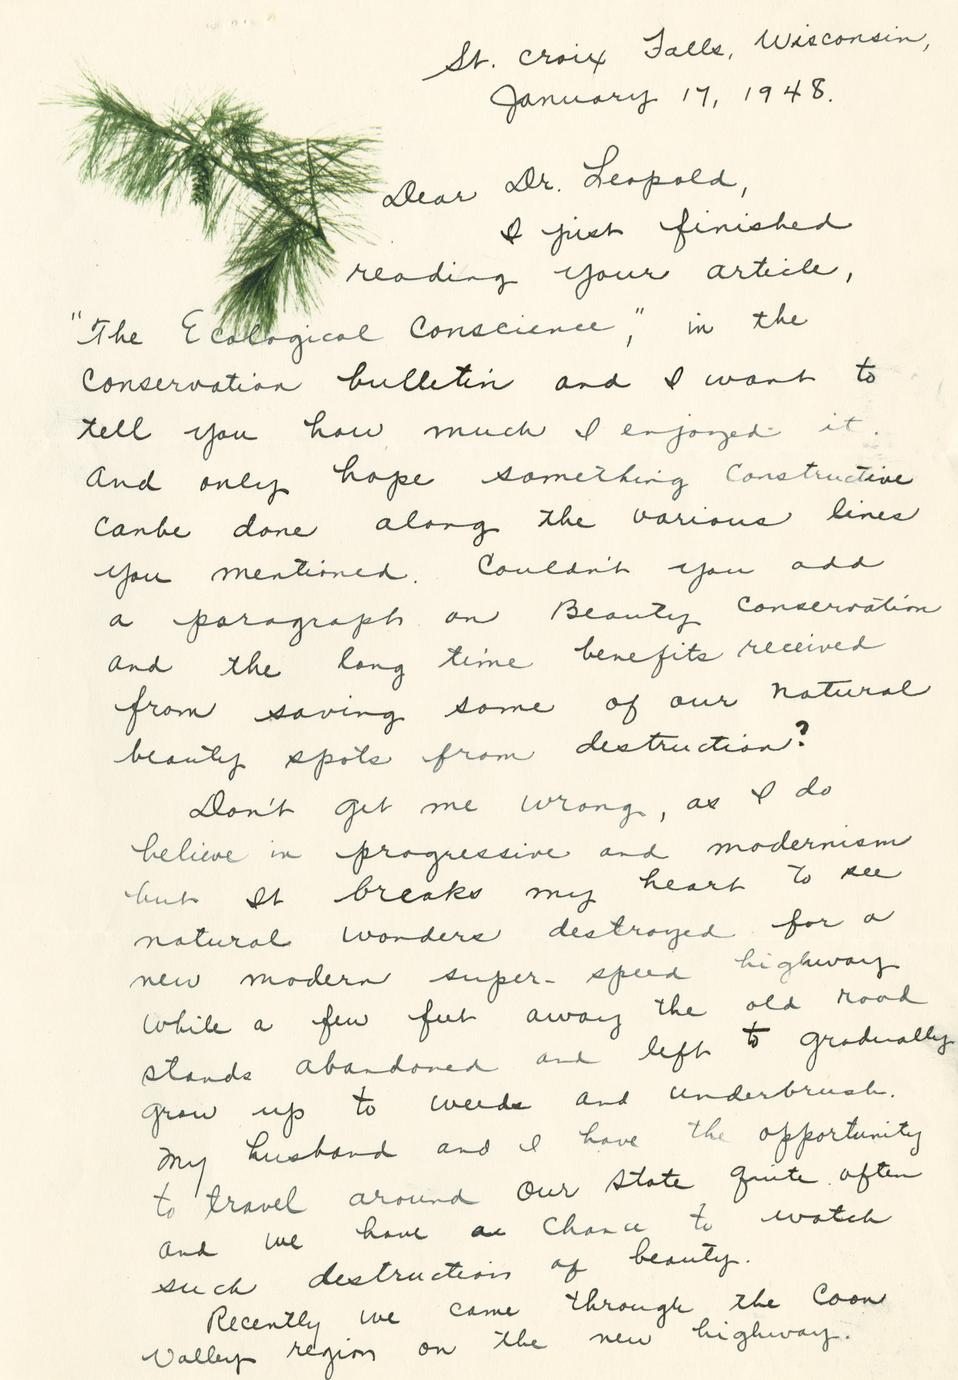 St. Croix Falls, Wisconsin,
January 17, 1948.
Dear Dr. Leopold,
I just finished
reading your article,
"The Ecological Conscience", in the
Conservation bulletin and I want to
tell you how much I enjoyed it.
And only hope something constructive
canbe done along the various lines
you mentioned. Couldn't you add
a paragraph on Beauty Conservation
and the long time benefits received
from saving some of our natural
beauty spots from destruction?
Don't get me wrong, as I do
believe in progressive and modernism
but It breaks my heart to see
natural wonders destroyed for a
new modern super-speed highway
while a few feet away the old road
stands abandoned and left to gradually
grow up to weeds and underbrush.
My husband and I have the opportunity
to travel around our state quite often
and we have a chance to watch
such destruction of beauty.
Recently we came through the Coon
Valley region on the new highway.